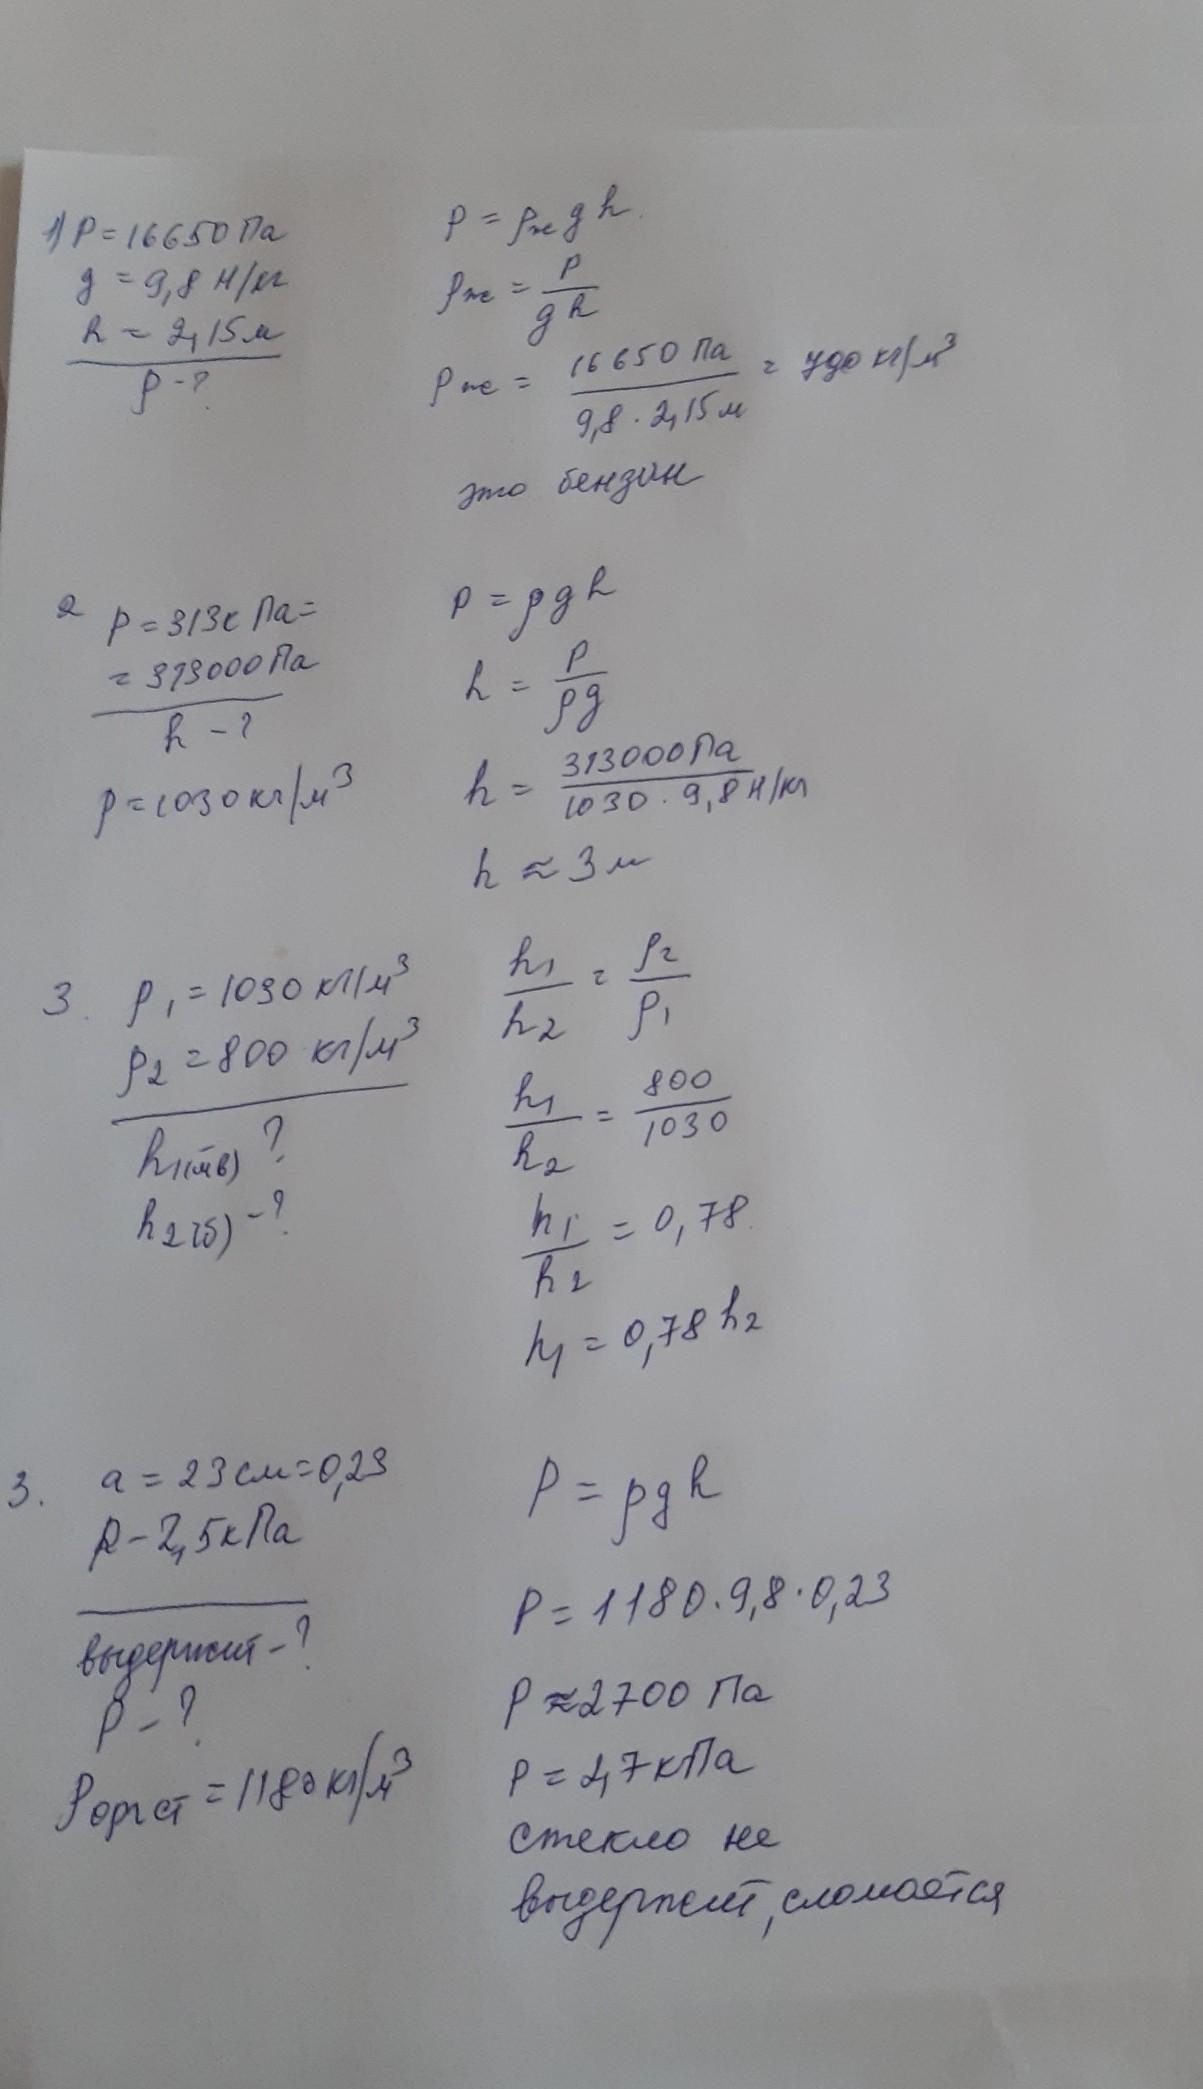 1) P = 16650 Па
g = 9,8 Н/кг
h = 2,15 м
ρ - ?
P = ρж g h
ρж = P / gh
ρж = 16650 Па / 9,8 · 2,15 м = 790 кг/м³
это бензин
2 P = 313 к Па =
= 313000 Па
h - ?
ρ = 1030 кг/м³
P = ρgh
h = P / ρg
h = 313000 Па / 1030 · 9,8 Н/кг
h ≈ 3 м
3. ρ₁ = 1030 кг/м³
ρ₂ = 800 кг/м³
h₁(мв) ?
h₂(б) - ?
h₁ / h₂ = ρ₂ / ρ₁
h₁ / h₂ = 800 / 1030
h₁ / h₂ = 0,78
h₁ = 0,78 h₂
3. a = 23 см = 0,23
P - 2,5 кПа
выдержит - ?
P - ?
ρоргст = 1180 кг/м³
P = ρgh
P = 1180 · 9,8 · 0,23
P ≈ 2700 Па
P = 2,7 кПа
стекло не
выдержит, сломается